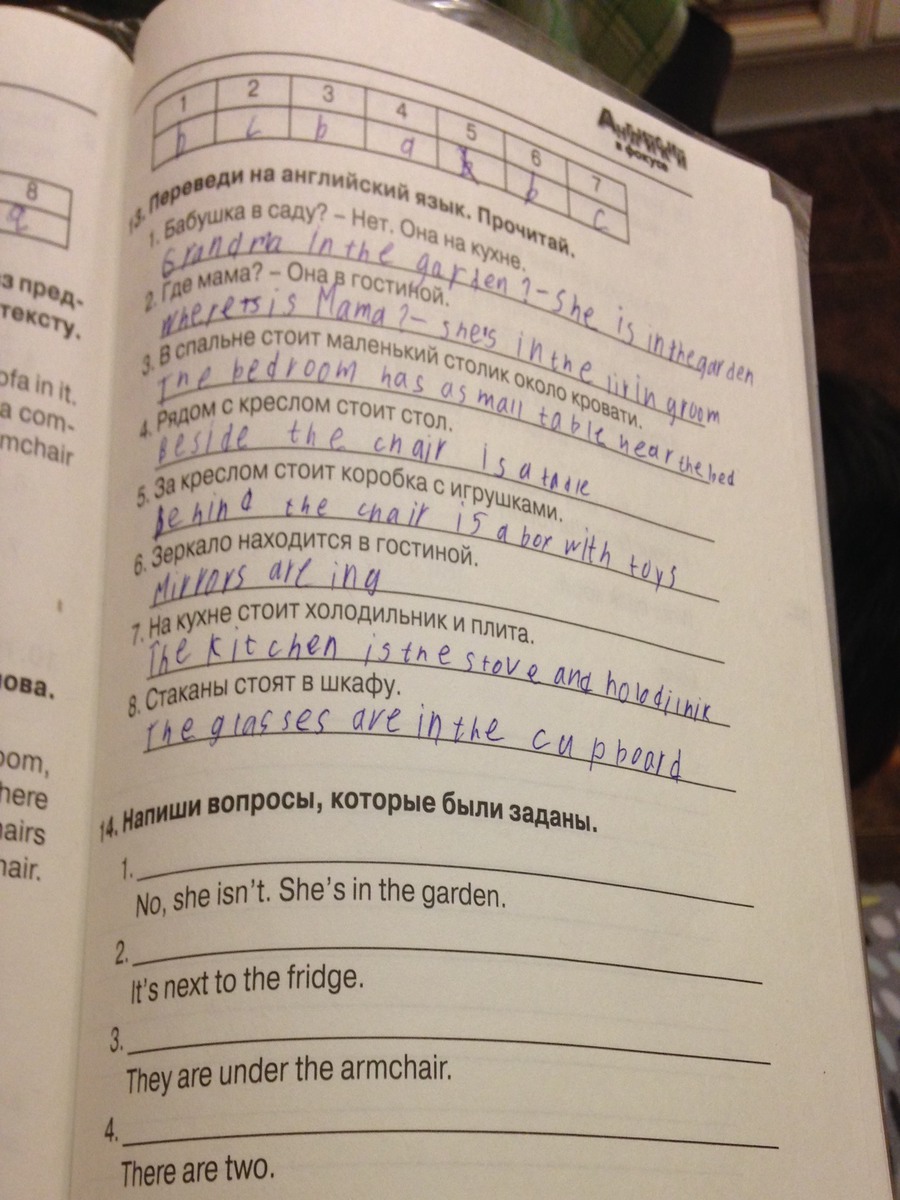 1 2 3 4 5 6 7
b c b a b c
Английский
в фокусе
8
a
13. Переведи на английский язык. Прочитай.
1. Бабушка в саду? – Нет. Она на кухне.
Grandma in the garden? – She is in the garden
2. Где мама? – Она в гостиной.
is Mama? – she's in the livin groom
3. В спальне стоит маленький столик около кровати.
The bedroom has a small table near the bed
4. Рядом с креслом стоит стол.
Beside the chair is a table
5. За креслом стоит коробка с игрушками.
Behind the chair is a box with toys
6. Зеркало находится в гостиной.
Mirrors are ing
7. На кухне стоит холодильник и плита.
The kitchen is the stove and holodilnik
8. Стаканы стоят в шкафу.
The glasses are in the cupboard
14. Напиши вопросы, которые были заданы.
1.
No, she isn't. She's in the garden.
2.
It's next to the fridge.
3.
They are under the armchair.
4.
There are two.
з пред-
тексту.
ofa in it.
a com-
mchair
лова.
oom,
here
airs
hair.